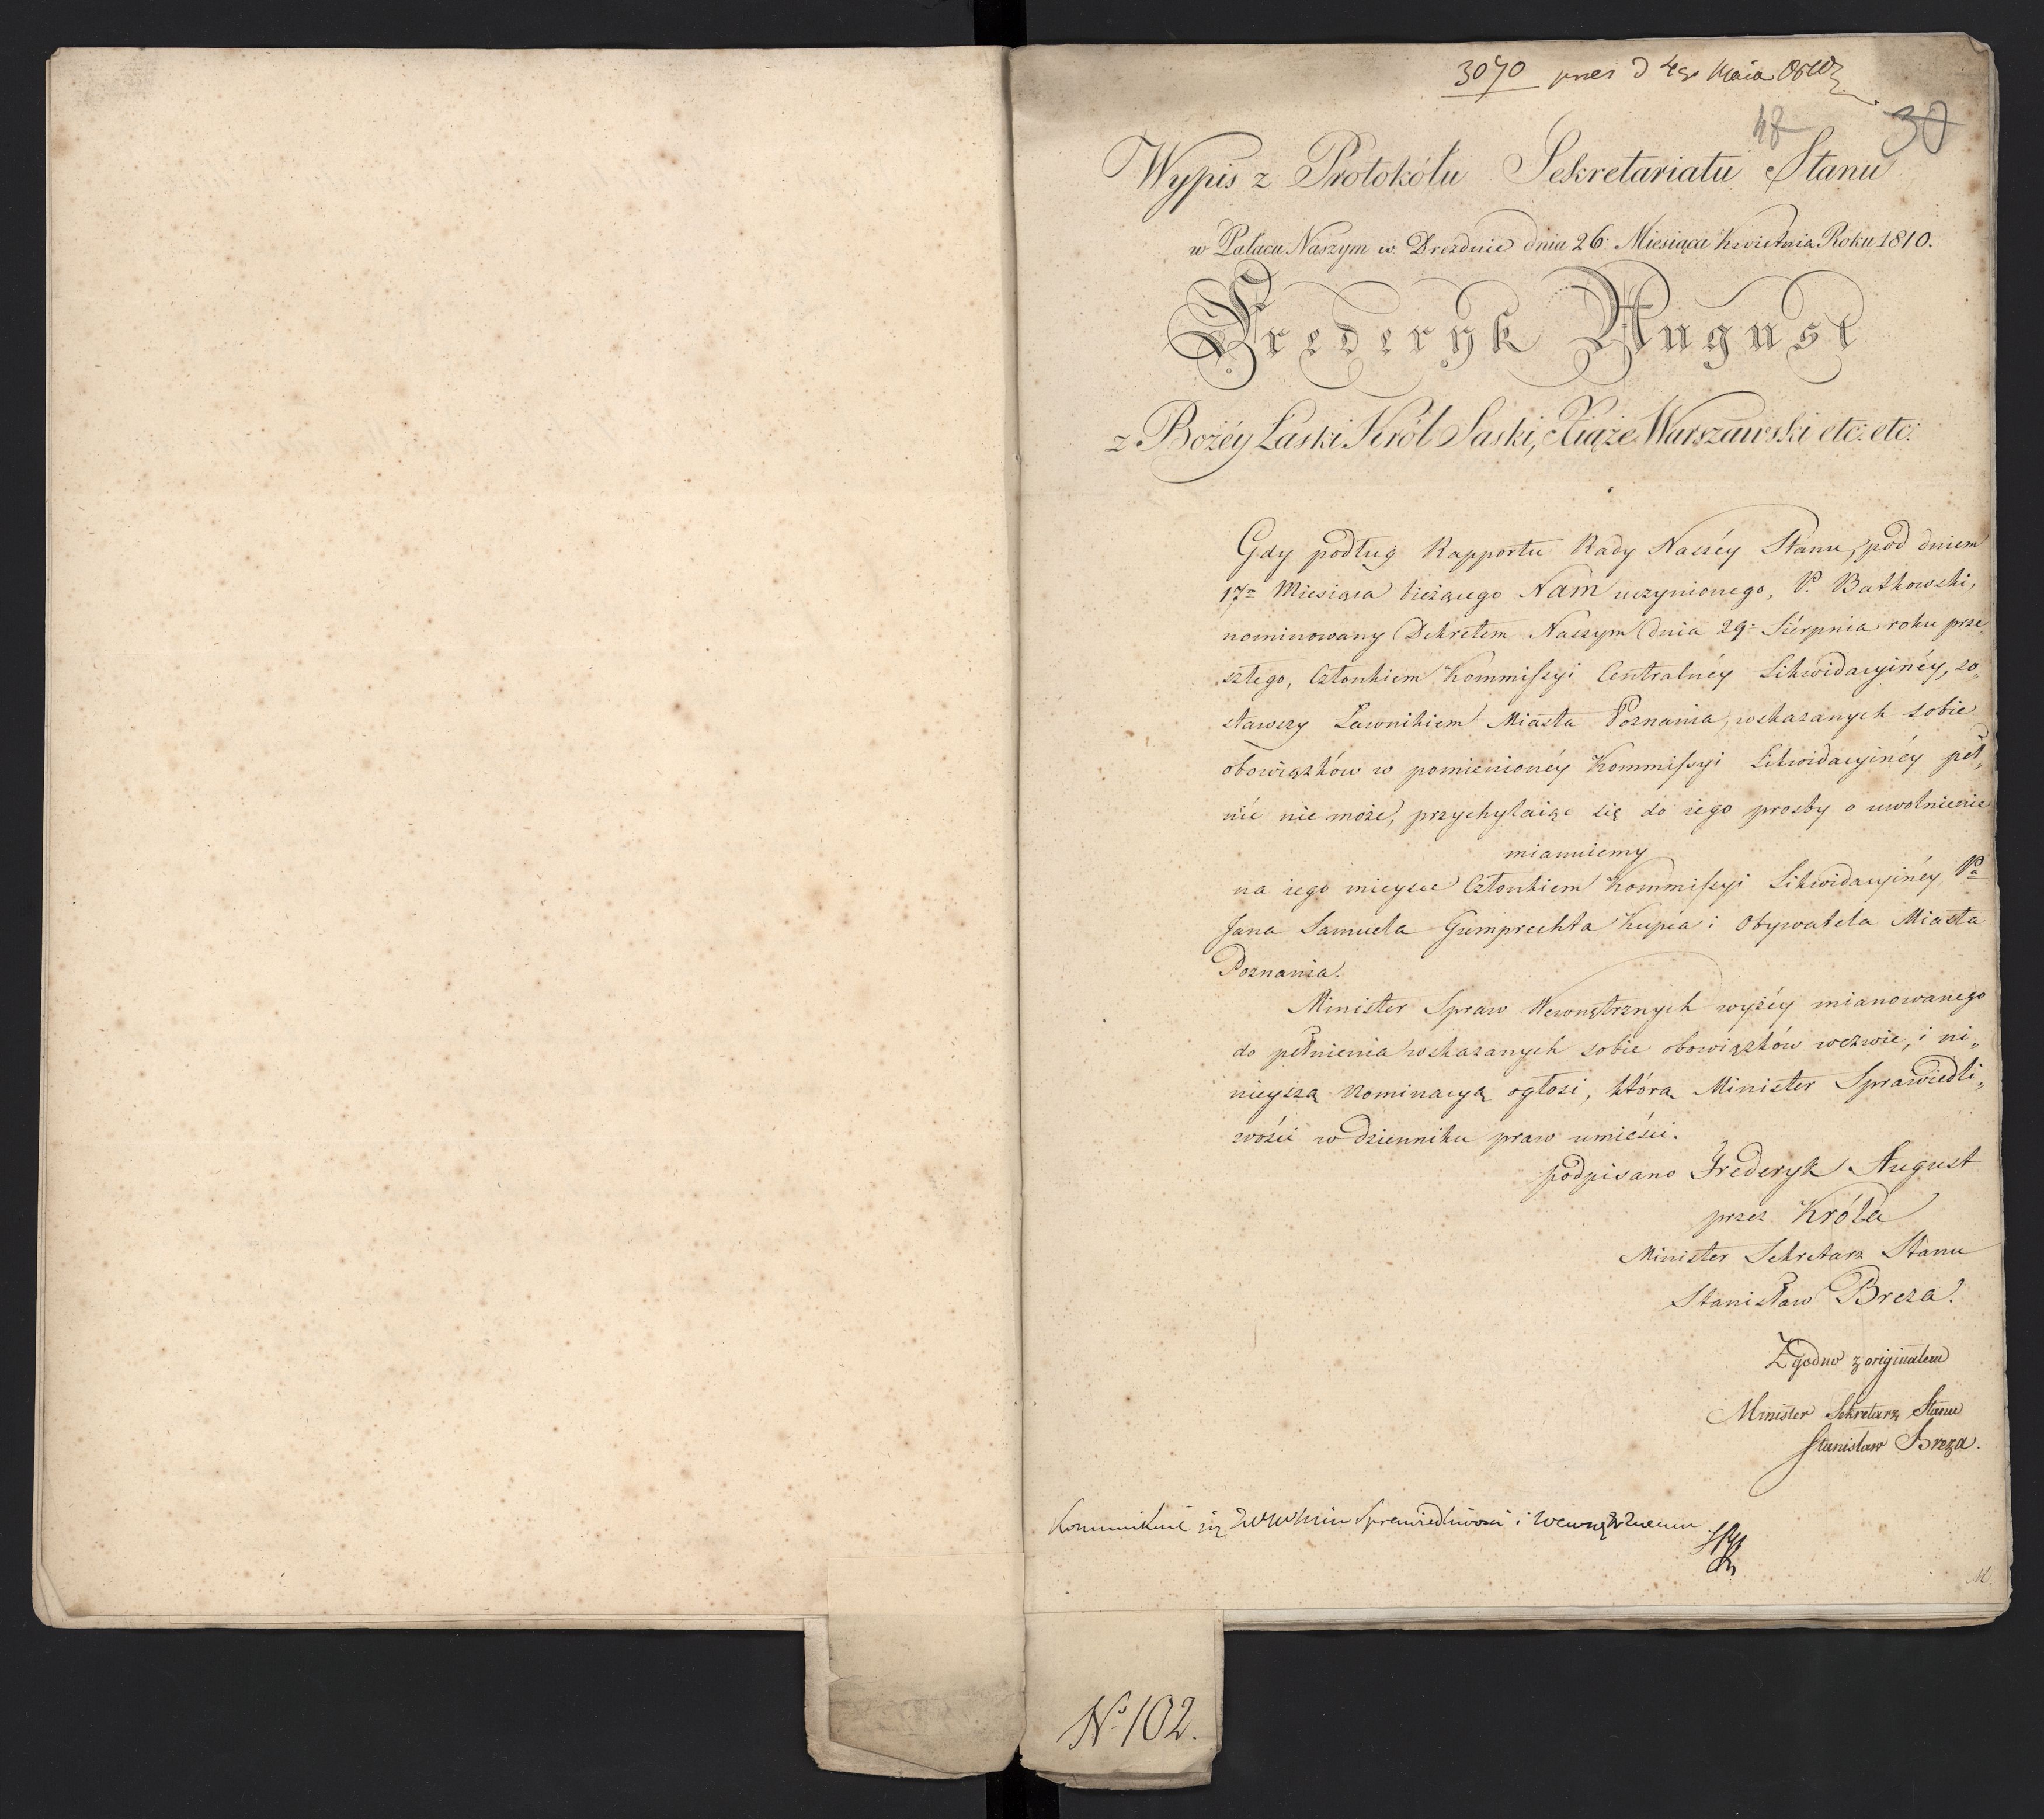 3070 pres d 4go Maia
48 30
Wypis z Protokółu Sekretariatu Stanu
w Pałacu Naszym w Dreznie dnia 26: Miesiąca Kwietnia Roku 1810.
Frederyk August
z Bożéy Łaski Król Saski, Xiąże Warszawski etc: etc:
Gdy podług Rapportu Rady Naszéy Stanu, pod dniem
17m Miesiąca bieżącego Nam uczynionego, P. Batkowski,
nominowany Dekretem Naszym dnia 29: Sierpnia roku prze„
szłego, Członkiem Kommissyi Centralnéy Likwidacyinéy, zo„
stawszy Ławnikiem Miasta Poznania, wskazanych sobie
obowiązków w pomienionéy Kommissyi Likwidacyinéy peł„
nić nie może, przychylaiąc się do iego prośby o uwolnienie
mianuiemy
na iego mieysce Członkiem Kommissyi Likwidacyinéy Pa
Jana Samuela Gumprechta Kupca i Obywatela Miasta
Poznania.
Minister Spraw Wewnętrznych wyżéy mianowanego
do pełnienia wskazanych sobie obowiązków wezwie, i ni„
nieyszą Nominacyą ogłosi, którą Minister Sprawiedli„
wości w dzienniku praw umieści.
podpisano Frederyk August
przez Króla
Minister Sekretarz Stanu
Stanisław Breza.
Zgodno z originałem
Minister Sekretarz Stanu
Stanisław Breza.
Sprawiedliwości i Wewnętrznemu
M.
No 102.